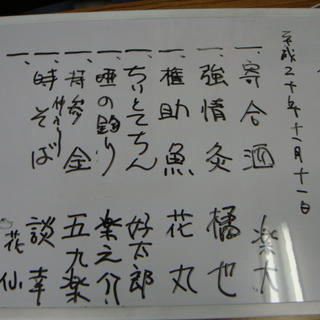 平成二十年十二月十一日
一、寄合酒 楽大
一、強情灸 橘也
一、権助魚 花丸
一、ちりとてちん 好太郎
一、唖の釣り 楽之介
一、持参金 五九楽
仲入り
一、時そば 談幸
花仙